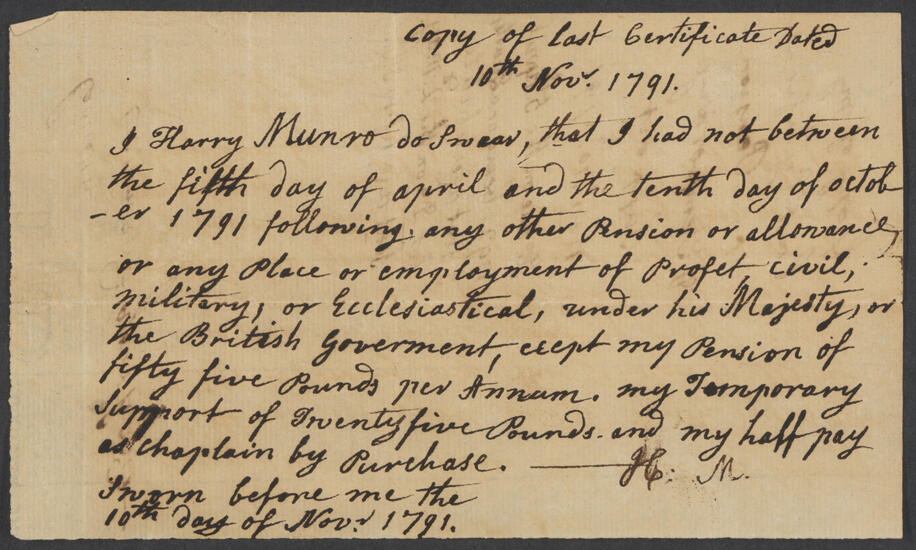 Copy of last Certificate Dated
10th Novr 1791.
I Harry Munro do Swear, that I had not between
the fifth day of april and the tenth day of octob-
-er 1791 following. any other Pension or allowance,
or any Place or employment of Profet, civil,
military, or Ecclesiastical, under his Majesty, or
the British Goverment, ecept my Pension of
fifty five Pounds per Annum. my Temporary
Support of Twentyfive Pounds. and my half pay
as Chaplain by Purchase. — H. M.
Sworn before me the
10th day of Novr 1791.